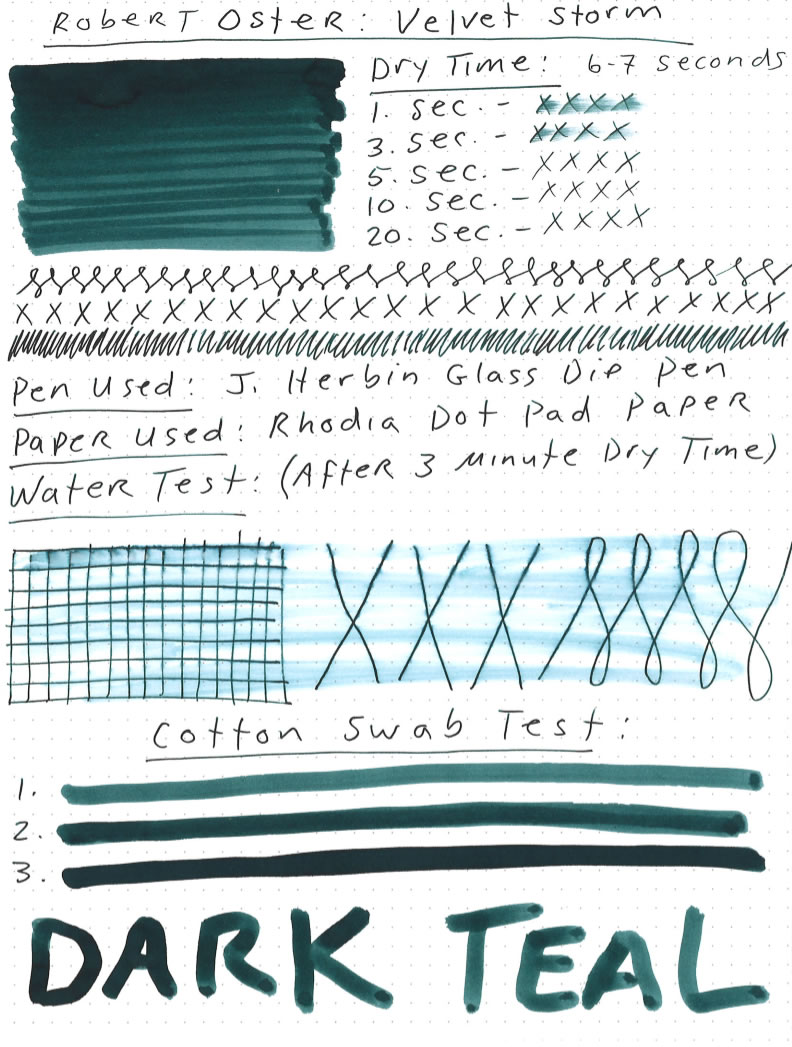 Robert Oster: Velvet Storm
Dry Time: 6-7 seconds
1. sec. - XXXX
3. sec. - XXXX
5. sec. - XXXX
10. sec. - XXXX
20. sec. - XXXX
XXXXXXXXXXXXXXXXXXXXXXXXXX
Pen Used: J. Herbin Glass Dip Pen
Paper Used: Rhodia Dot Pad Paper
Water Test: (After 3 Minute Dry Time)
XXX
Cotton Swab Test:
1.
2.
3.
DARK TEAL